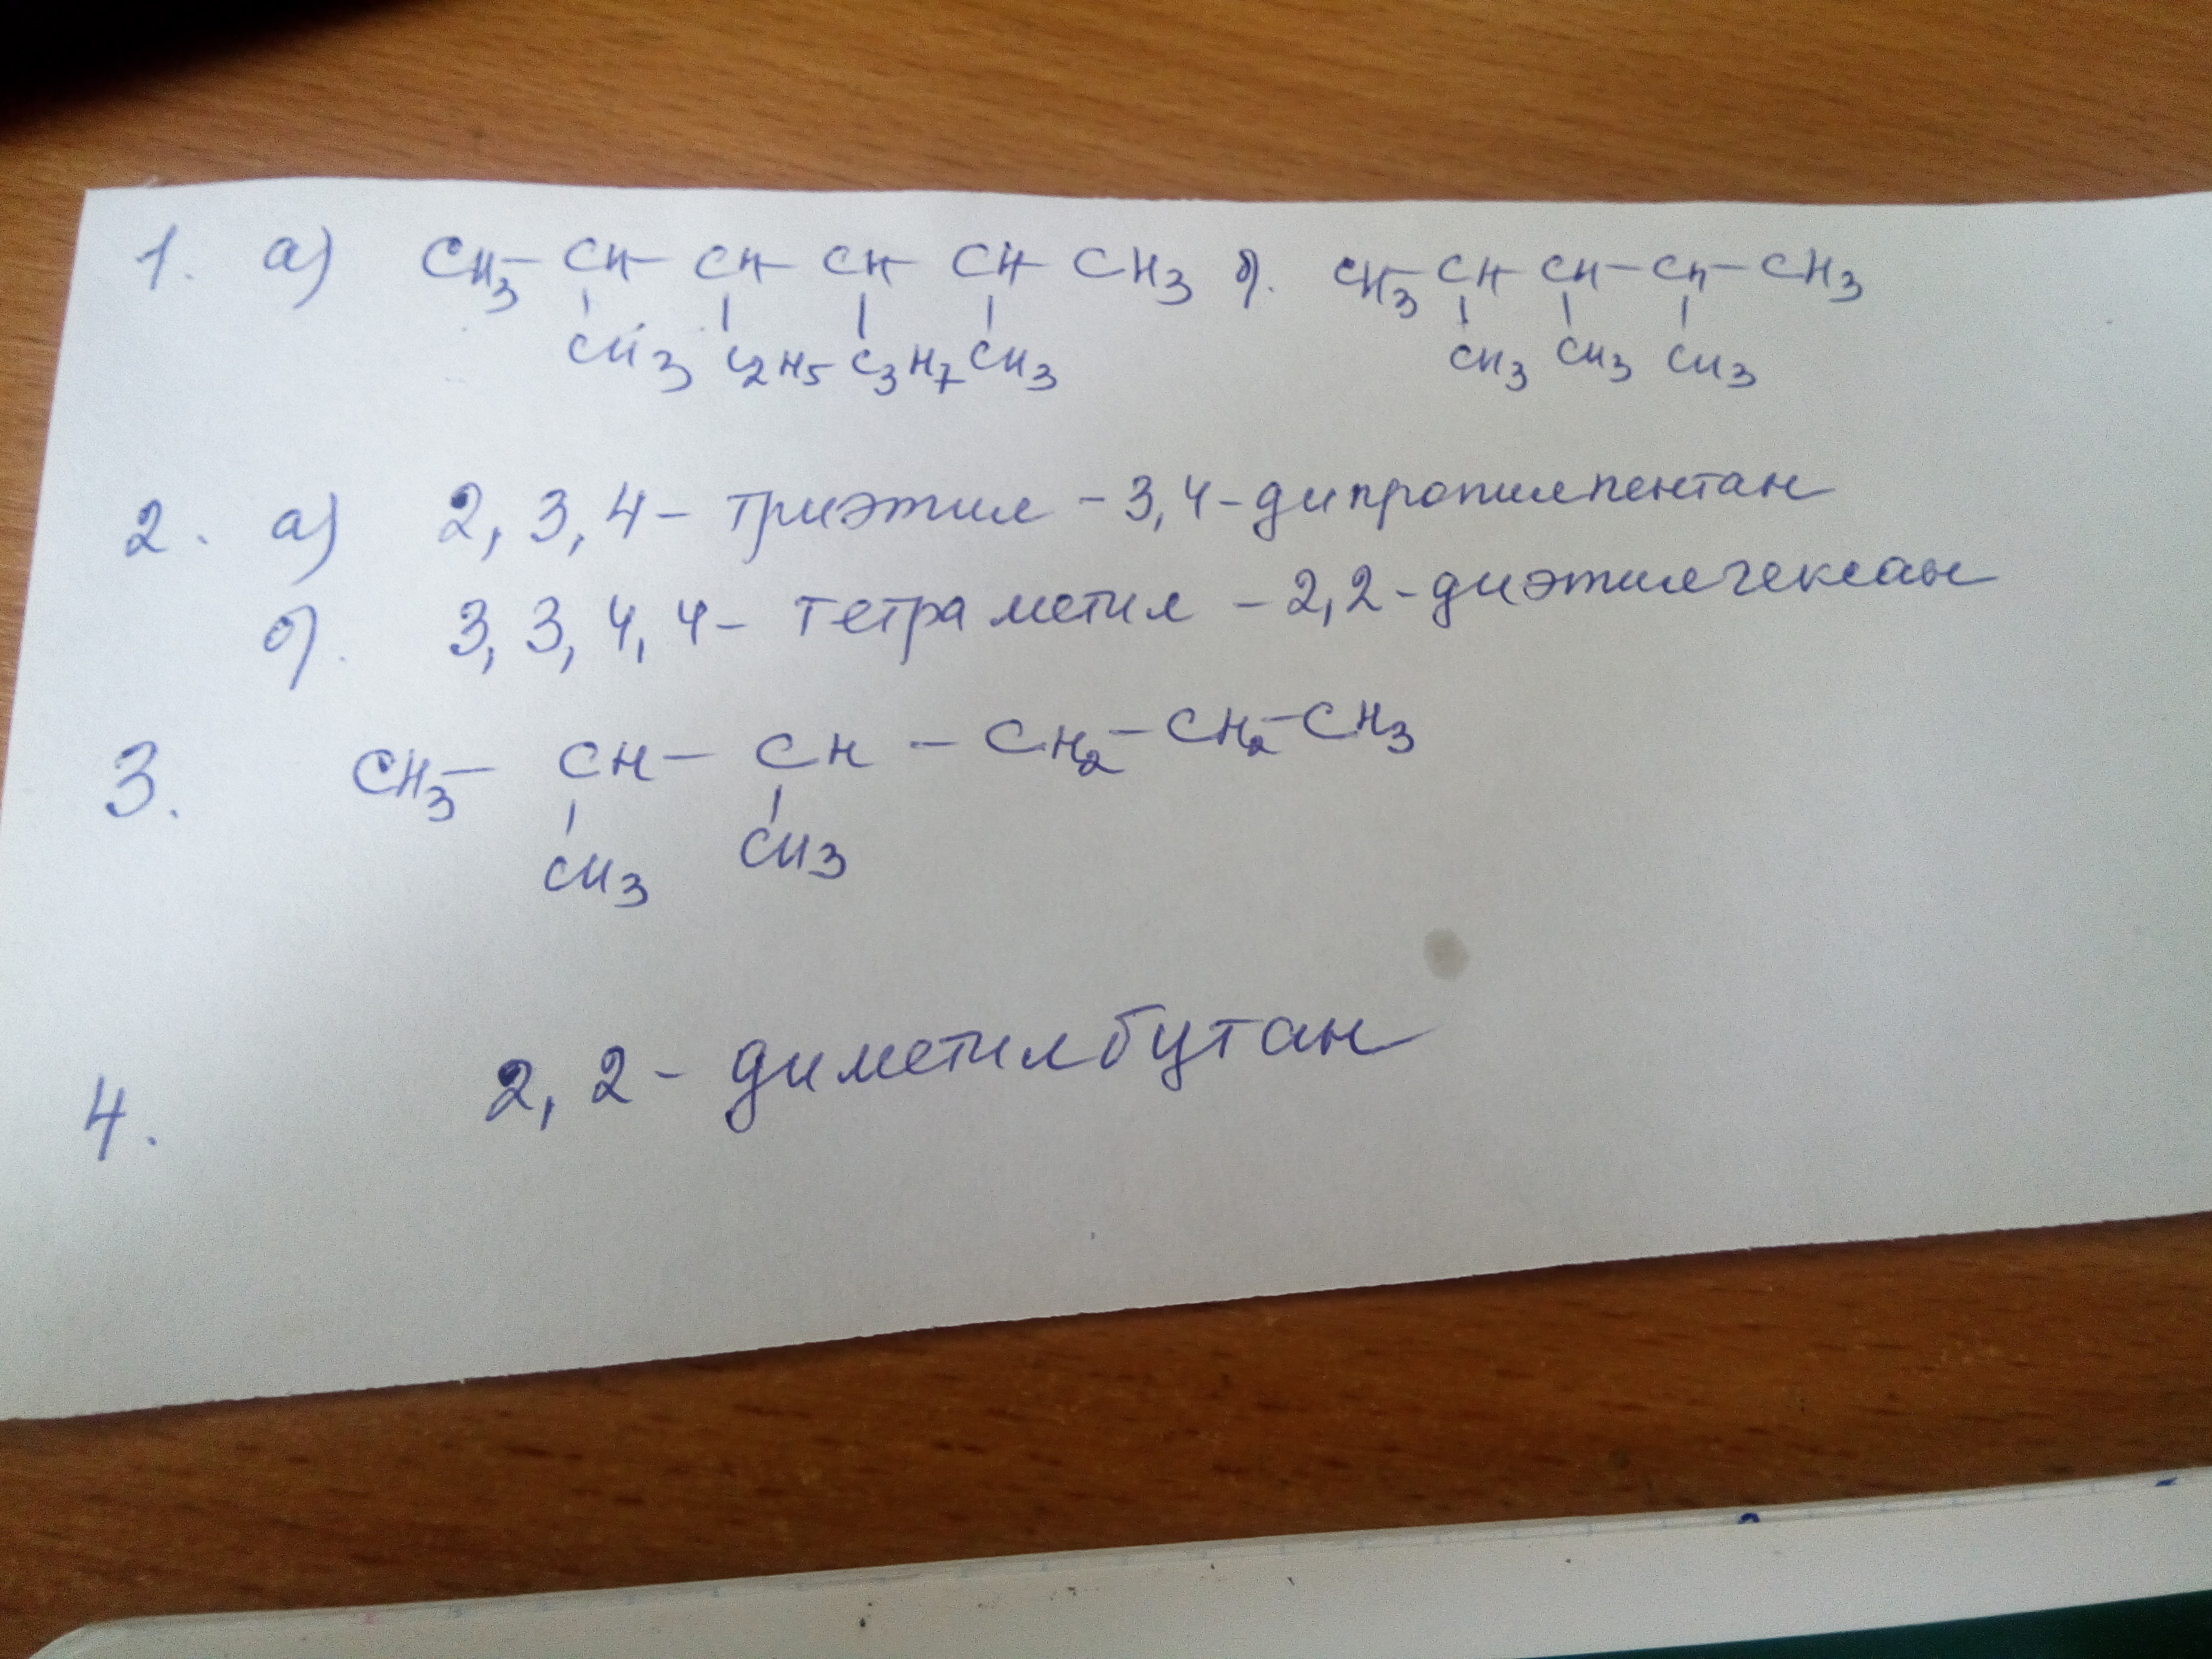 1. а) CH3 – CH – CH – CH – CH – CH3 б). CH3 – CH – CH – CH – CH3
CH3 C2H5 C3H7 CH3 CH3 CH3 CH3
2. а) 2, 3, 4 – триэтил – 3,4 – дипропилпентан
б). 3, 3, 4, 4 – тетраметил – 2,2 – диэтилгексан
3. CH3 – CH – CH – CH2 – CH2 – CH3
CH3 CH3
4. 2, 2 – диметилбутан